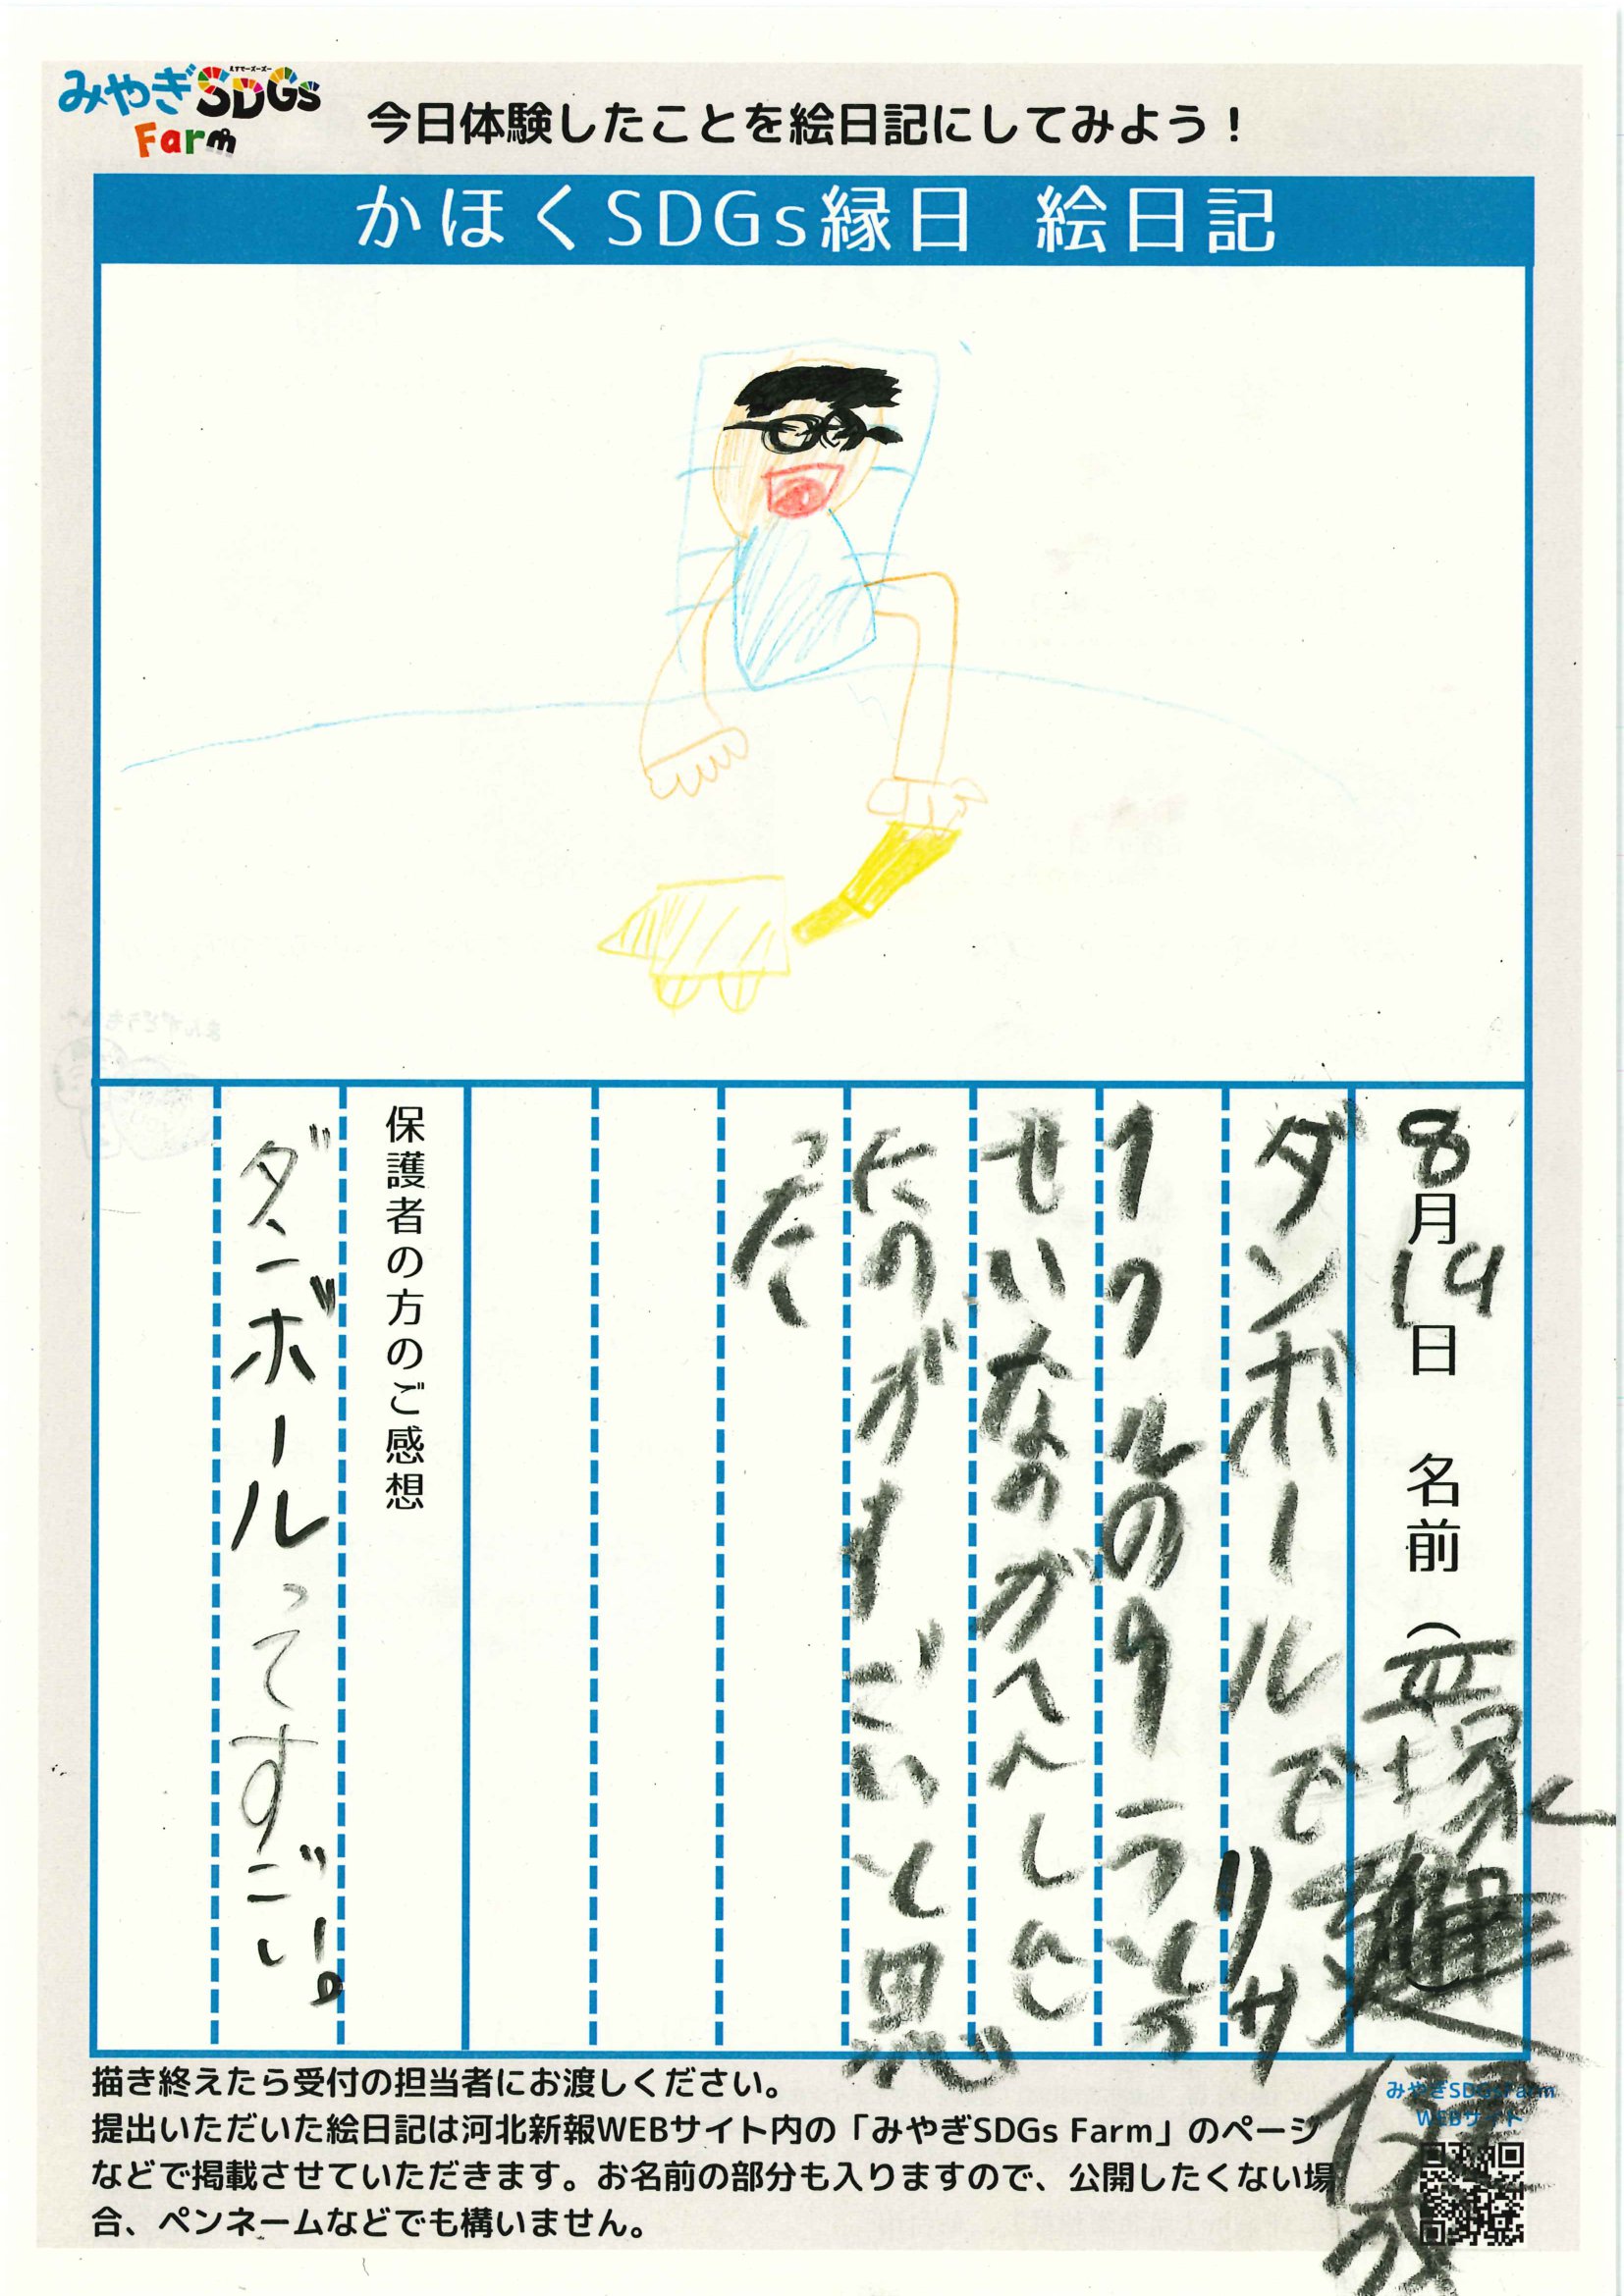 みやぎSDGs
Farm
今日体験したことを絵日記にしてみよう！
かほくSDGs縁日 絵日記
8月19日 名前（
ダンボールでリサ
イクルの
せいなのがへんしん
たのがすごいと思
った
保護者の方のご感想
ダンボールってすごい！。
描き終えたら受付の担当者にお渡しください。
提出いただいた絵日記は河北新報WEBサイト内の「みやぎSDGs Farm」のページ
などで掲載させていただきます。お名前の部分も入りますので、公開したくない場
合、ペンネームなどでも構いません。
みやぎSDGsFarm
WEBサイト